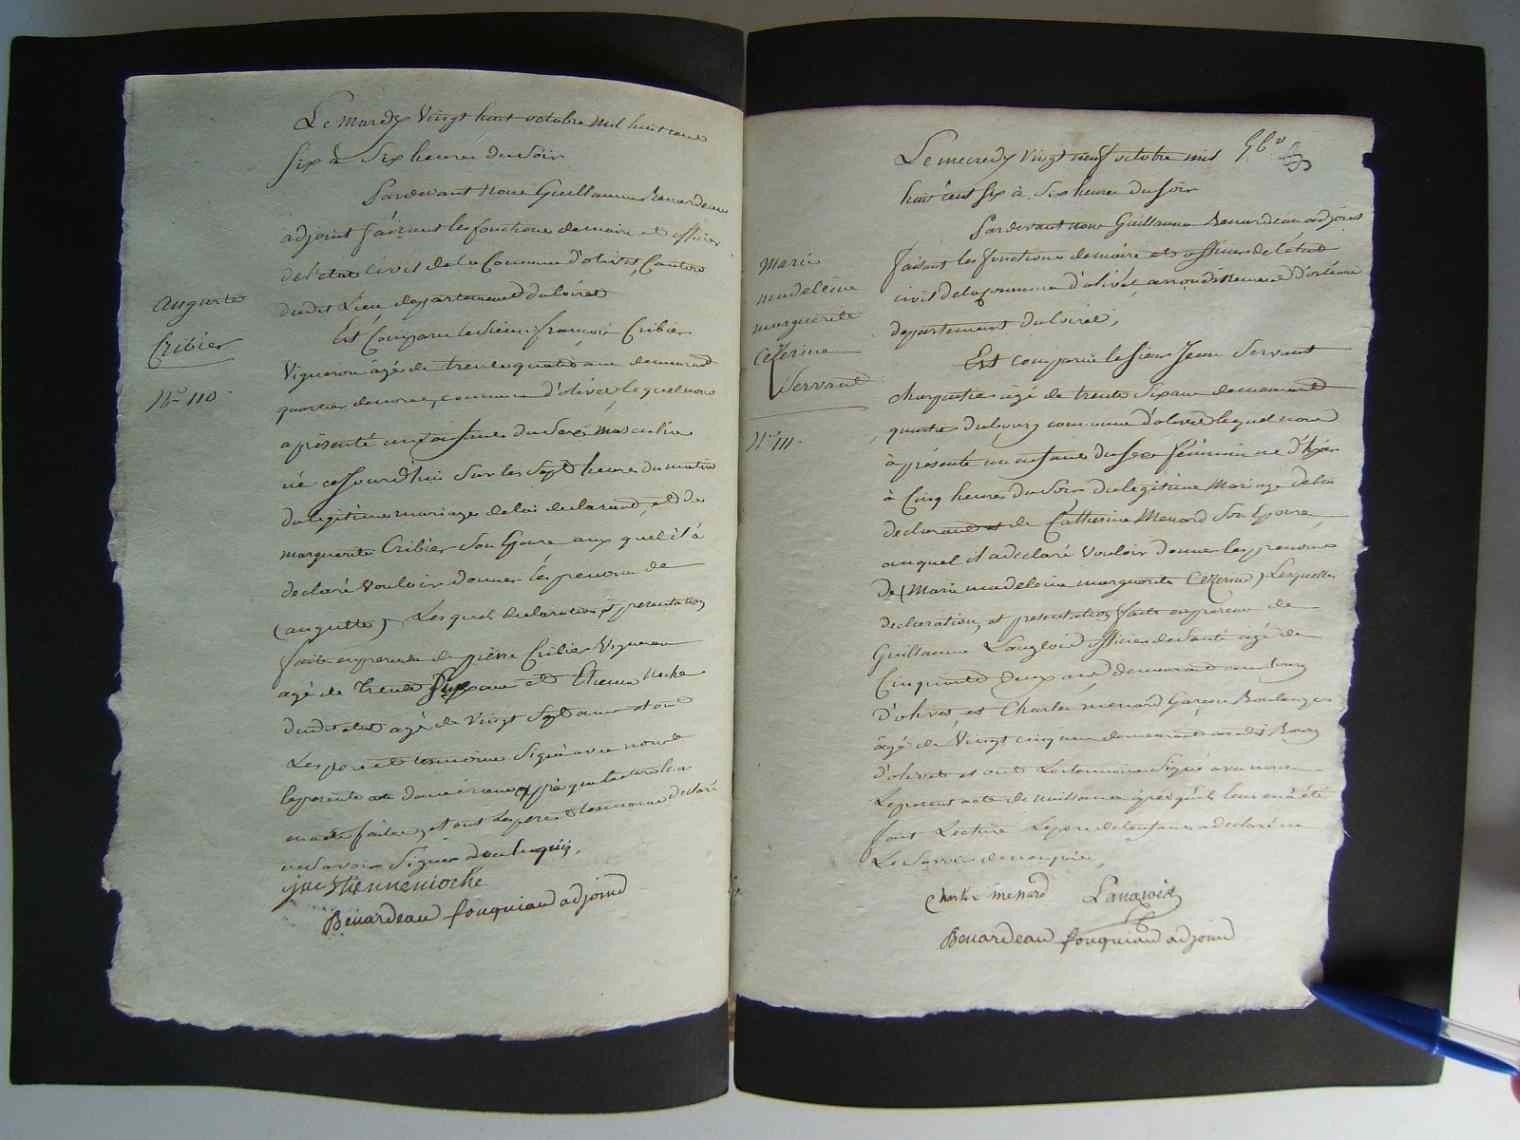 Le mardy Vingt huit octobre mil huit cent
six à Six heures du Soir
Pardevant nous Guillaume Benardeau
adjoint faisant les fonctions de maire et officier
de l'état civil de la Commune d'olivet, Canton
dudit Lieu departement du loiret
Auguste
Cribier
N.º 110
Est Comparu le Sieur françois Cribier
Vigneron âgé de trente quatre ans demeurant
quartier de commune d'olivet, lequel nous
a présenté un Enfant du Sexe masculin
né cejourd'hui Sur les Sept heures du matin
du legitime mariage de lui declarant, et de
marguerite Cribier Son Epouse aux quel il à
declaré Vouloir donner les prenoms de
(auguste) Lesquels declaration et presentation
faite en presence de pierre Cribier Vigneron
agé de trente ans et Etienne
dudit état agé de Vingt Sept ans et ont
Les pere et temoins Signé avec nous le
le present acte de naissance après que lecture leur
en a été faite, et ont Les pere et temoins declaré
ne Savoir Signer de ce Enquis,
Etienne nioche
Benardeau fouquiau adjoint
56.e
Le mecredy Vingt neuf octobre mil
huit cent Six à Six heures du Soir
Pardevant nous Guillaume Benardeau adjoint
faisant les fonctions de maire et officier de l'état
civil de la commune d'olivet, arrondissement d'orleans
departement du loiret,
Marie
madeleine
marguerite
Cezerine
Servant
N.º 111.
Est comparu le Sieur Jean Servant
charpentier agé de trente Six ans demeurant
quartier du bourg commune d'olivet lequel nous
à présenté un enfant du Sexe féminin né d'hyer
à Cinq heures du Soir, du legitime Mariage de lui
declarant et de Catherine Menard Son Epouse,
auquel il a declaré Vouloir donner les prenoms
de (Marie madeleine marguerite Cezerine) Lesquelles
declaration, et presentation faite en presence de
Guillaume Langlois officier de Santé agé de
Cinquante deux ans demeurant au bourg
d'olivet, et Charles menard Garçon Boulanger
âgé de Vingt cinq ans demeurant au dit Bourg
d'olivet et ont Les temoins Signé avec nous
Le present acte de naissance après qu'il leur en a été
fait Lecture Le pere de l'enfant a declaré ne
Le Savoir de ce enquis,
Charle menard Langlois
Benardeau fouquiau adjoint